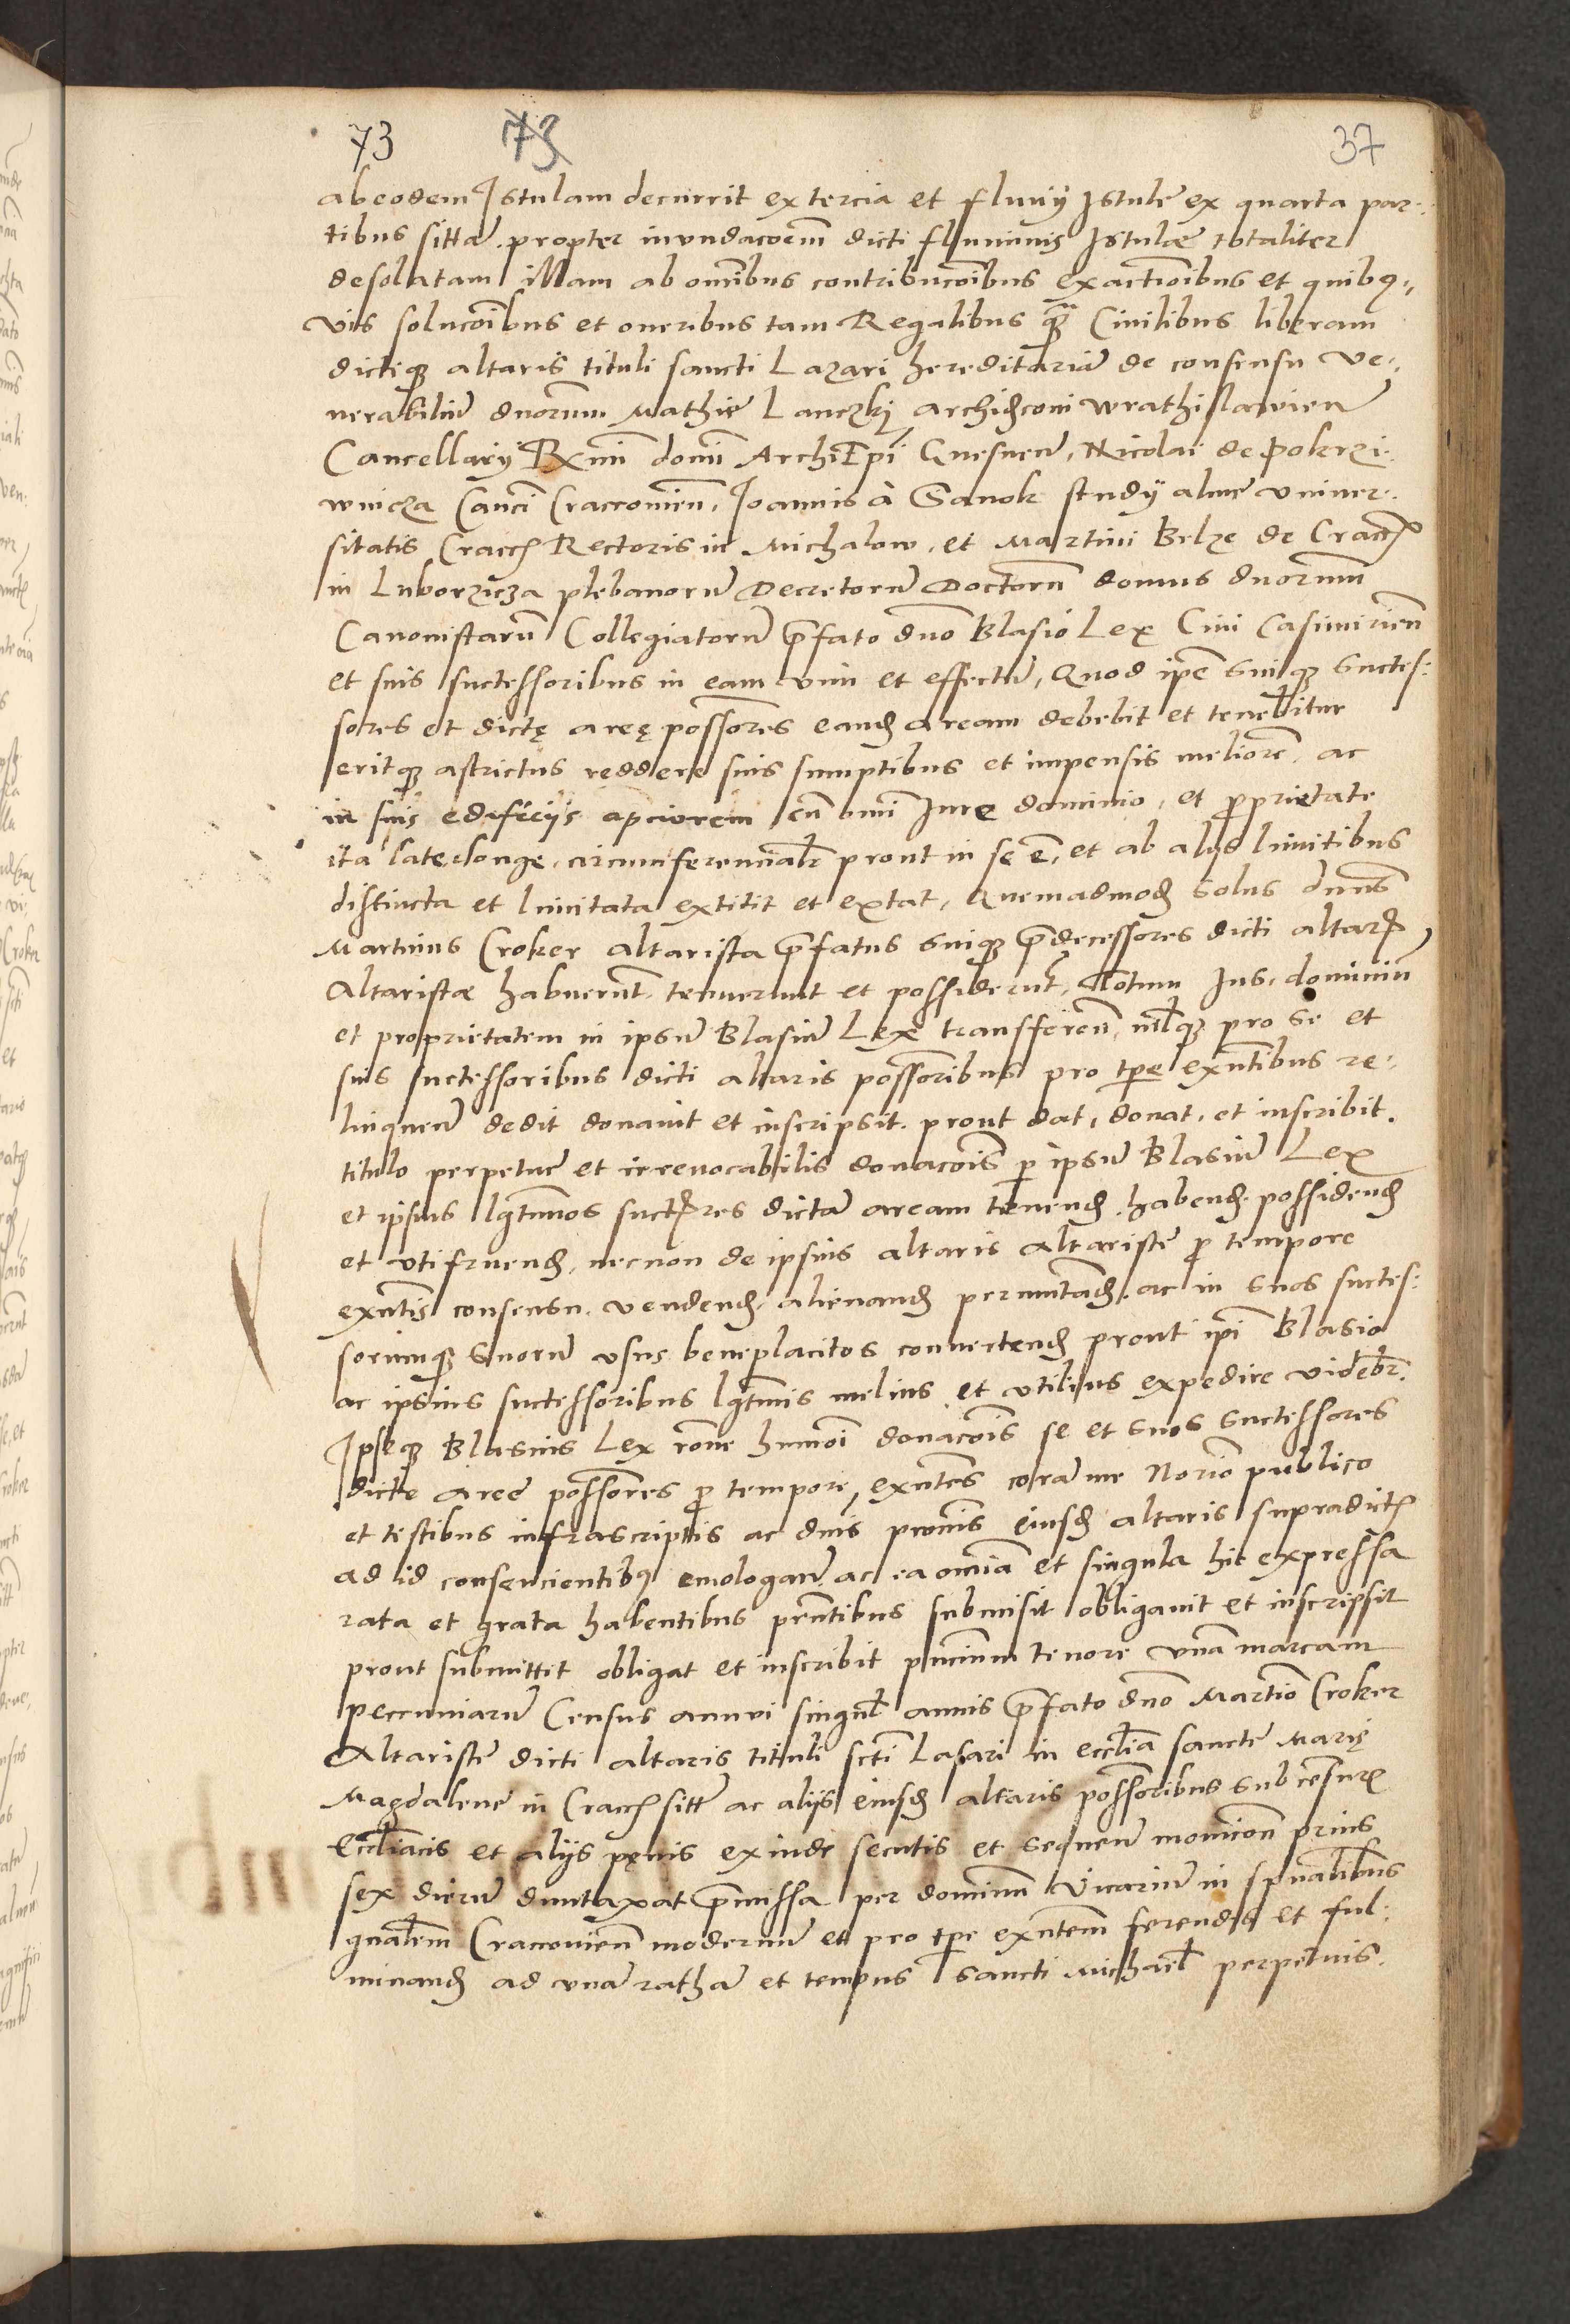 73 73 37
ab eodem Istulam decurrit ex tercia et fluuij Istule ex quarta par-
tibus sittã. propter inundacoem̃ dicti fluuiuis Istulæ totaliter
desolatam illam ab om̃ibus contribuc̃oibus exactioĩbus et quibq̃-
vis soluc̃oibus et oneribus tam Regalibus q̃ Ciuilibus liberam
dictiq̃ altaris tituli sancti Lazari hereditariã de consensu Ve-
nerabiliũ duorum Mathie Lanczkj archidconi wrathislauieñ
Cancellarij Rxmĩ domĩ ArchiEpĩ Gnesneñ, Nicolai de Pokrzi-
wnicza Canci Cracouieñ, Joannis à Sanok studij alme vniuer-
sitatis Cracc̃ Rectoris in Michalow, et Martini Belze de Cracc̃
in Luborzicza plebanorũ Decretorũ Doctorũ domus duorum̃
Canonistarũ Collegiatorũ p̃fato dño Blasio Lex Ciui Casimirieñ
et suis successoribus in eam vim et effectũ, Quod ip̃e suiq̃ succes-
sores et dictę areę poss̃ores eand̃ aream debebit et tenebitur
eritq̃ astrictus reddere suis sumptibus et impensis meliorẽ, ac
in suis edificijs apciorem cũ om̃i Jure dominio, et p̃prietate
ita late longe, circumferencialr̃ prout in se ẽ, et ab alijs limitibus
distincta et limitata extitit et extat, Quemadmod̃ solus dnũs
Martinus Croker altarista p̃fatus suiq̃ p̃decessores dicti altar̃
Altaristæ habuerũt, tenuerunt et possiderũt, Totum Jus, dominiũ
et proprietatem in ipsũ Blasiũ Lex transfereñ, nilq̃ pro se et
suis successoribus dicti altaris poss̃oribus pro tp̃e exñtibus re-
linqueñ dedit donauit et inscripsit. prout dat, donat, et inscribit.
titulo perpetue et irreuocabilis donac̃ois p̃ ipsũ Blasiũ Lex
et ipsius lg̃tmos succr̃es dictã aream tenend̃. habend̃. possidend̃
et vtifruend̃, necnon de ipsius altaris altariste p̃ tempore
exñtis consensu. vendend̃. alienand̃ permutãd̃. ac in suos succes-
sorumq̃ suorũ vsus beneplacitos conuertend̃ prout ip̃i Blasio
ac ipsius successoribus lg̃tmis melius et vtilius expedire videbr̃.
Ipseq̃ Blasius Lex rõne humõi donac̃ois se et suos successores
dicte aree poss̃ores p̃ tempore, exñtes corã me Norio publico
et testibus infrascriptis ac dñis prouis̃ eiusd̃ altaris supradict̃
ad id consencientibq̃ emologañ. ac ea omĩa et singula hic expressa
rata et grata habentibus prñtibus submisit obligauit et inscripsit
prout submittit obligat et inscribit p̃ncium tenore vnã marcam
pecuniarũ Census annui singul̃ annis p̃fato dño Martio Croker
Altariste dicti altaris tituli scti Lasari in eccl̃ia sancte Marię
Magdalene in Cracc̃ sitt̃ ac alijs eiusd̃ altaris poss̃oribus sub cẽsuris
Eccl̃iacis et alijs pęnis exinde secutis et sequeñ monicioñ prius
sex dierũ duntaxat p̃missa per dominũ Vicariũ in sp̃ualibus
gñalem Cracouieñ modernũ et pro tp̃e exñtem ferendis et ful-
minand̃ ad vnã rathã et tempus sancti Michael̃ perpetuis.